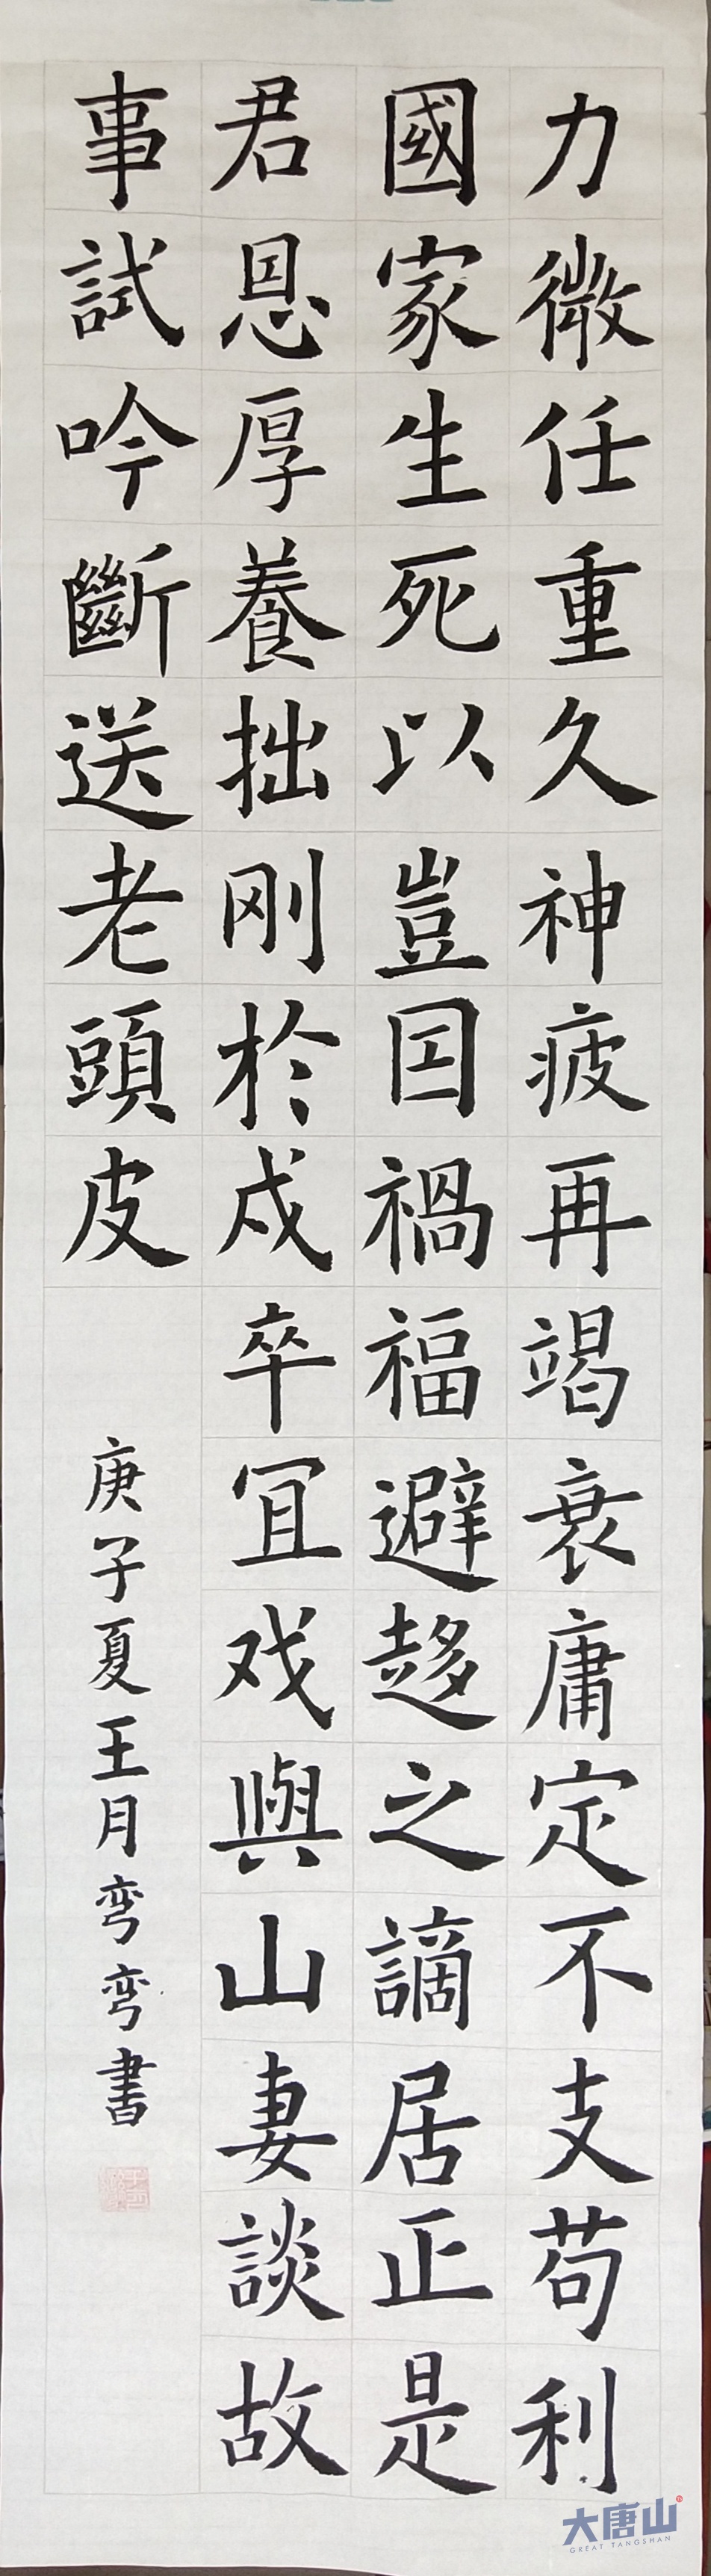 力微任重久神疲再竭衰庸定不支苟利
國家生死以豈因禍福避趍之謫居正是
君恩厚養拙刚於戍卒宜戏與山妻談故
事試吟斷送老頭皮
庚子夏王月弯弯書
大唐山
GREAT TANGSHAN